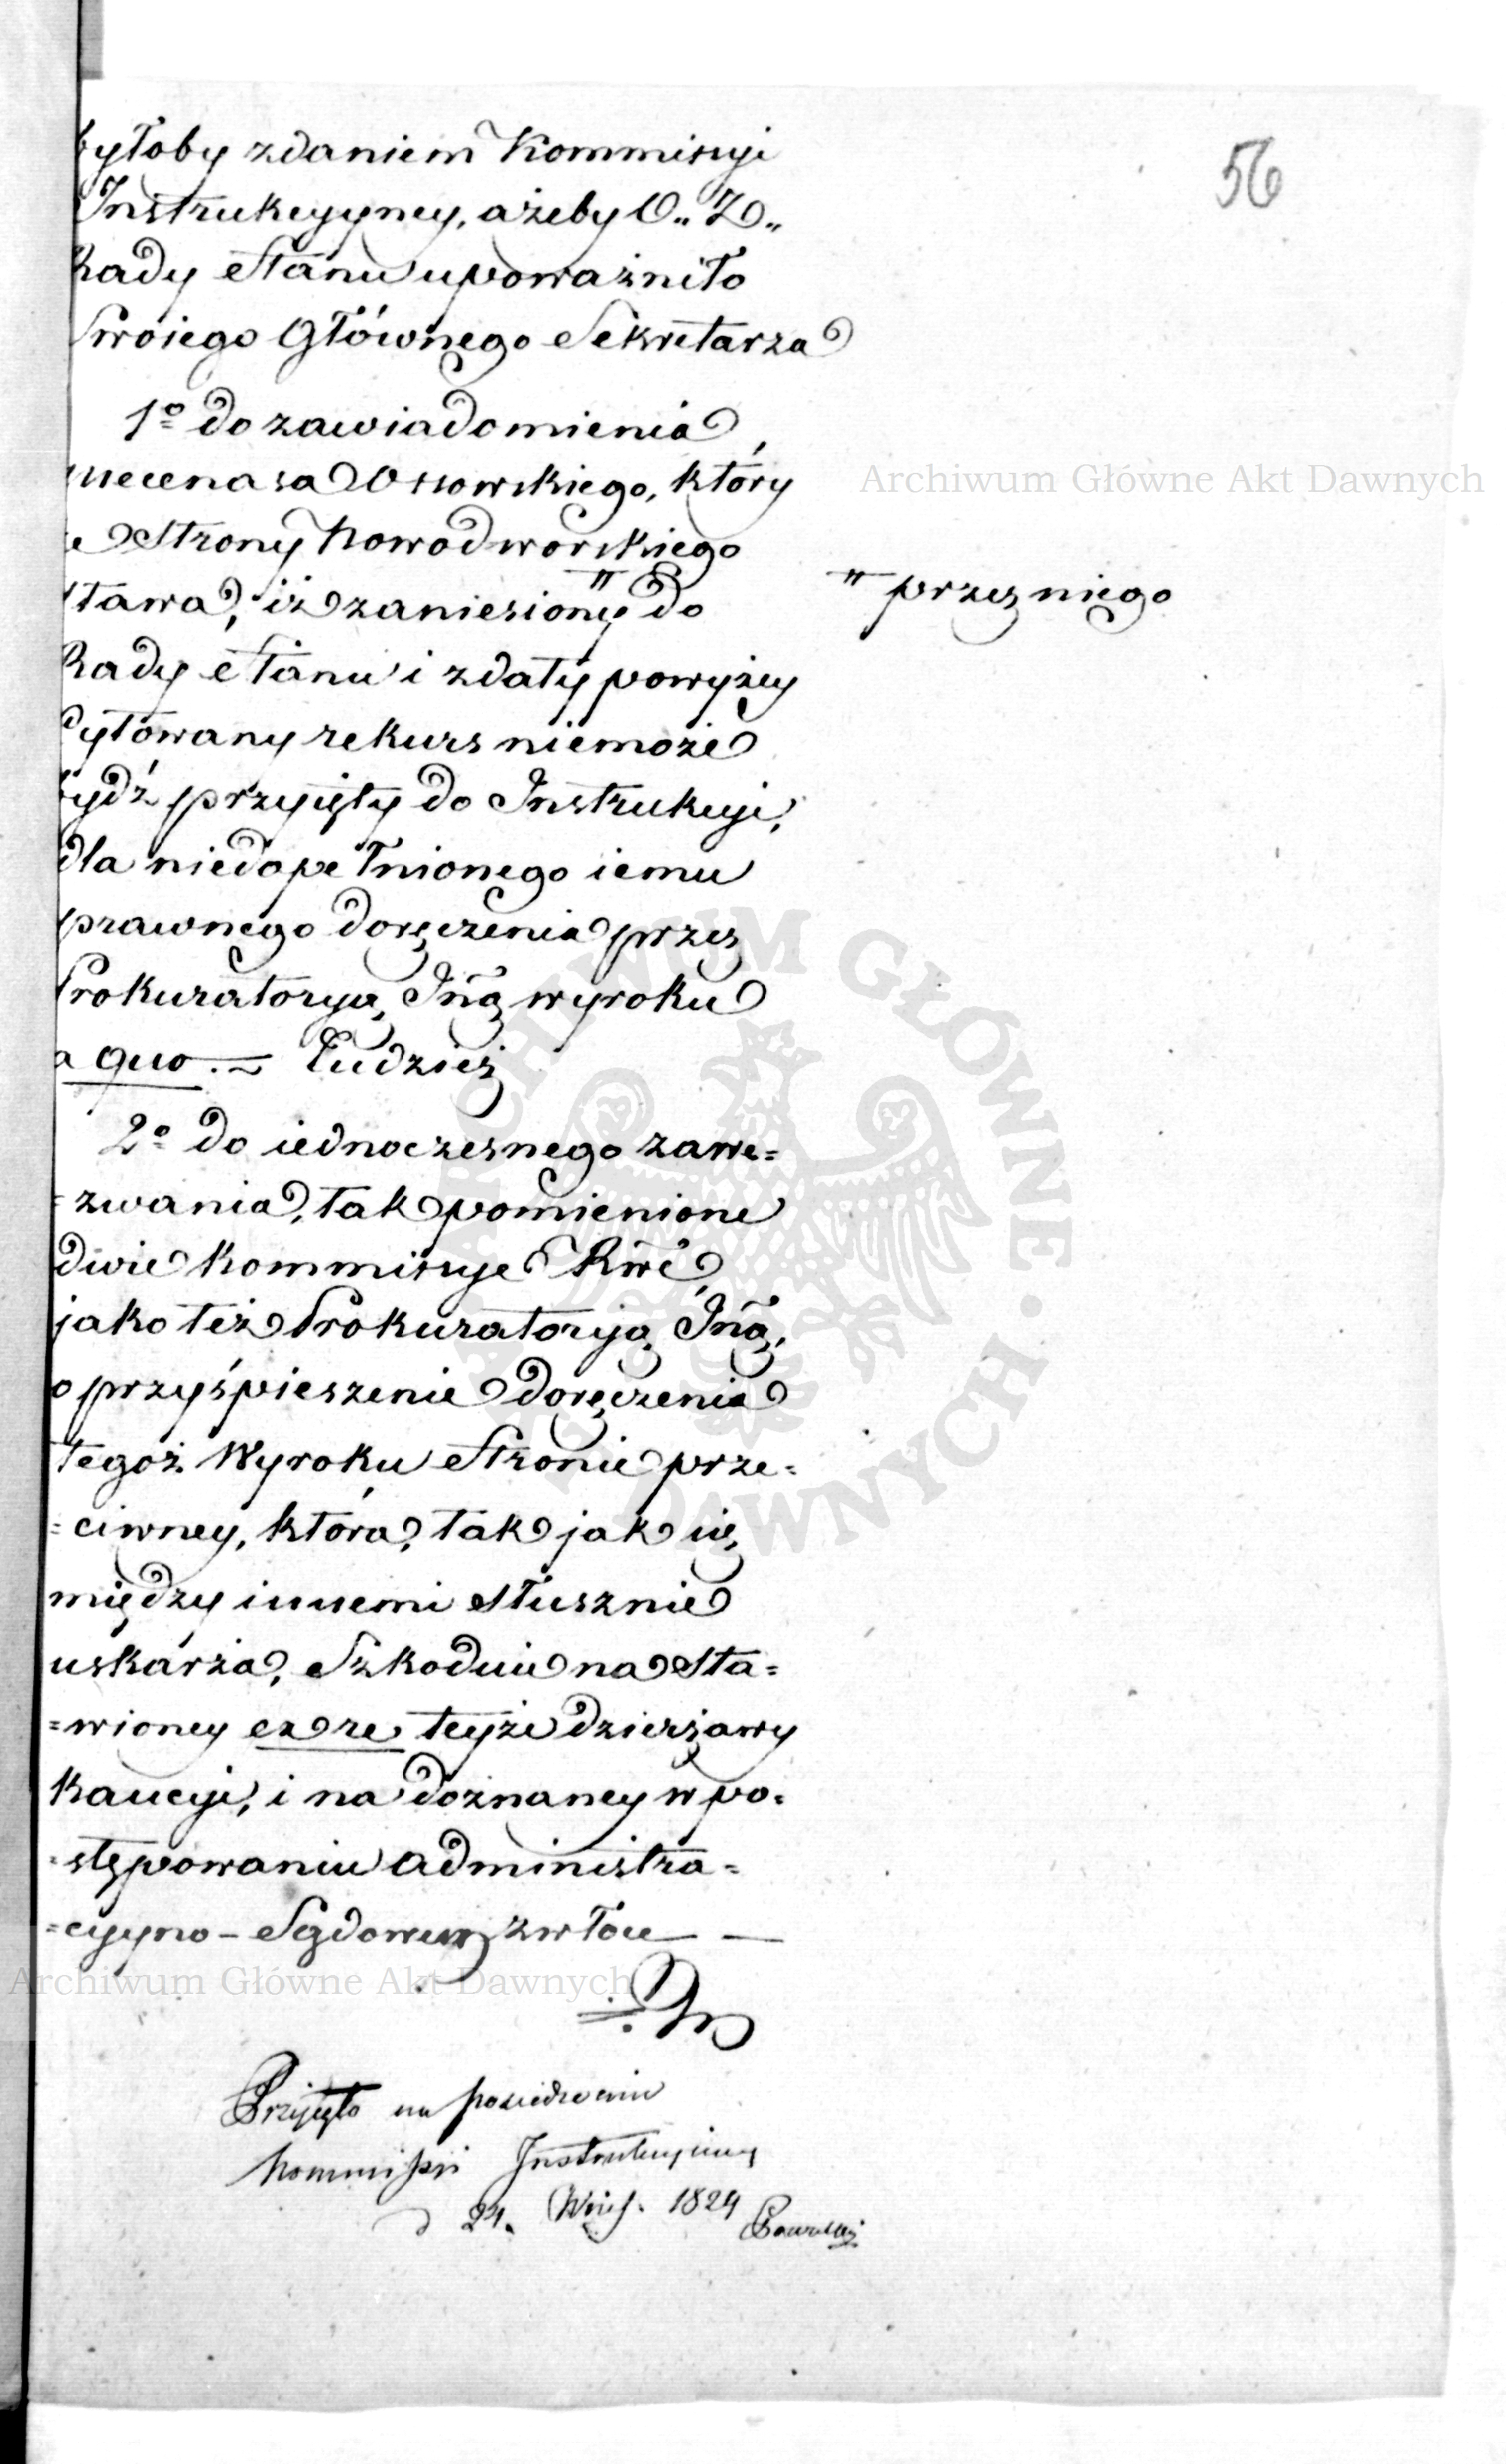 56
byłoby zdaniem Kommissyi
Instrukcyyney, ażeby O. Z.
Rady Stanu upoważniło
Swoiego Głównego Sekretarza
1º do zawiadomienia
mecenasa Ossowskiego, który
ze Strony Nowodworskiego
stawa, iż zaniesiony " do
" przez niego
Rady Stanu i z daty powyżey
cytowany rekurs niemoże
bydź przyięty do Instrukcyi,
dla niedopełnionego iemu
prawnego doręczenia przez
Prokuratoryą Jną wyroku
a quo. = Tudzież
2º do iednoczesnego zawe=
=zwania, tak pomienione
dwie Kommissye Rwé
jako też Prokuratoryą Jną,
o przyśpieszenie doręczenia
tegoż Wyroku Stronie prze=
=ciwney, która, tak jak się
między innemi słusznie
uskarża, Szkoduie na sta=
=wioney ex re teyże dzierżawy
Kaucyi, i na doznaney w po=
=stępowaniu administra=
=cyyno-Sądowem zwłoce
Przyjęto na posiedzeniu
Kommissyi Instrukcyiney
d 24. Wrześ. 1824
Archiwum Główne Akt Dawnych
Archiwum Główne Akt Dawnych
ARCHIWUM GŁÓWNE · AKT DAWNYCH ·